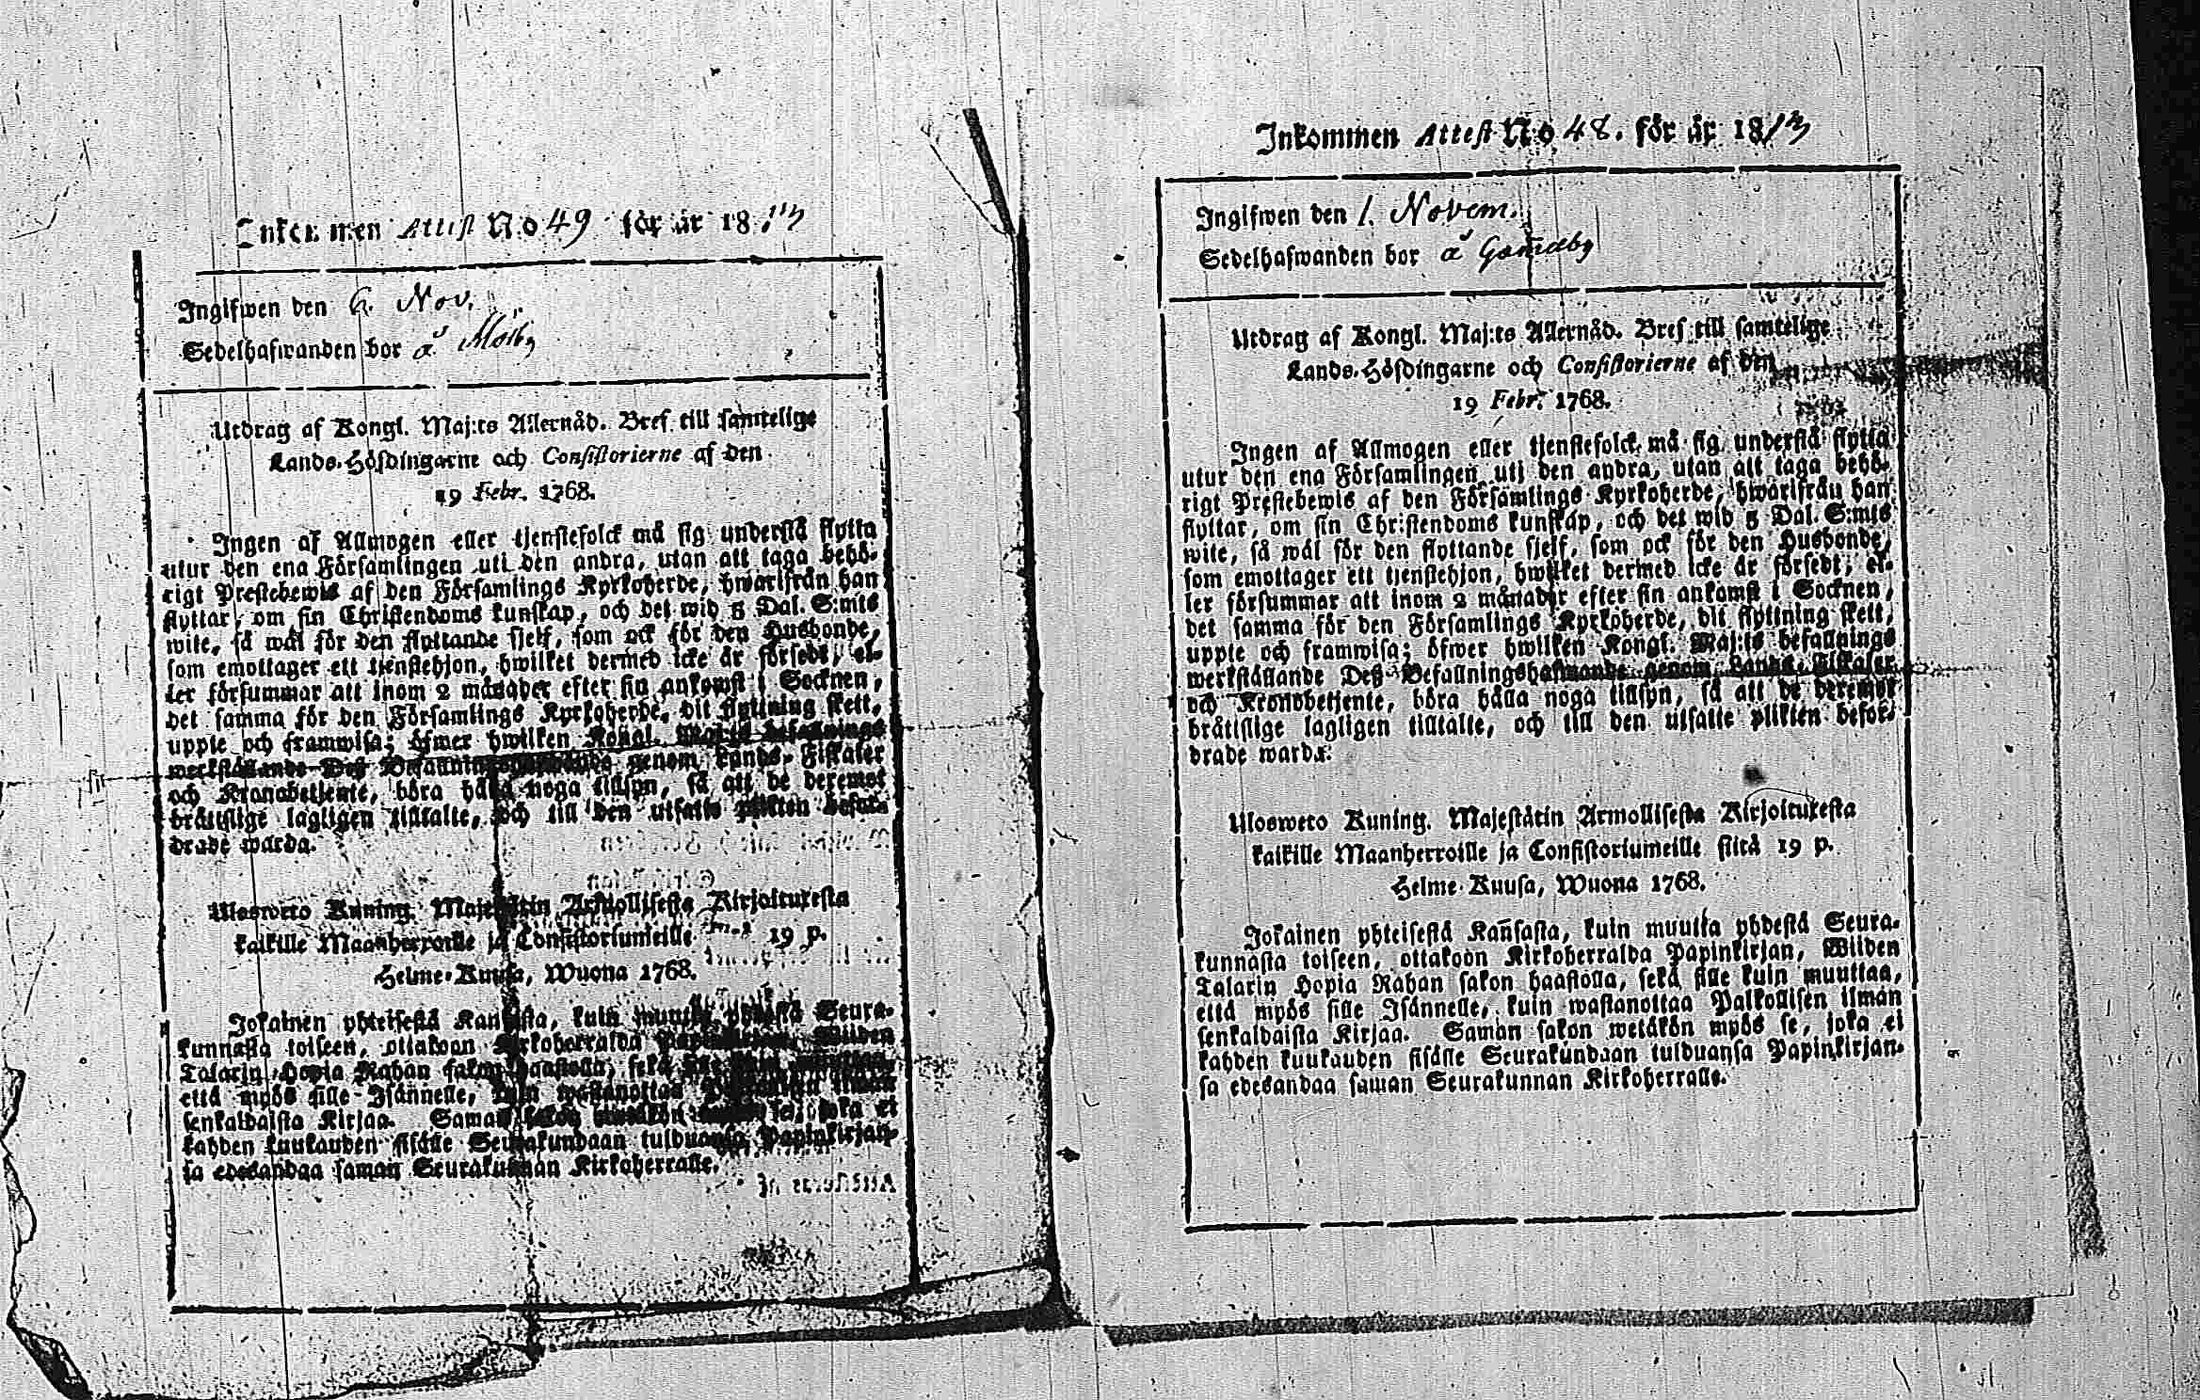 Inkommen Attest No 49 för år 1813
Ingifwen den 6. Nov.
Sedelhafwanden bor å
Utdrag af Kongl. Maj:ts Allernåd. Bref till samtelige
Lands-Höfdingarne och Consistorierne af den
19 Febr. 1768.
Ingen af Allmogen eller tjenstefolck må sig understå flytta
utur den ena Församlingen uti den andra, utan att taga behö-
rigt Prestebewis af den Församlings Kyrkoherde, hwarifrån han
flyttar, om sin Christendoms kunskap, och det wid 5 Dal. S:mts
wite, så wäl för den flyttande sjelf, som ock för den Husbonde,
som emottager ett tjenstehjon, hwilket dermed icke är försedt; el-
ler försummar att inom 2 månader efter sin ankomst i Socknen,
det samma för den Församlings Kyrkoherde, dit flyttning skett,
uppte och framwisa; öfwer hwilken Kongl. Maj:ts befallnings
werkställande Deß Befallningshafwande genom Lands-Fiskaler
och Kronobetjente, böra hålla noga tillsyn, så att de deremot
bråttslige lagligen tilltalte, och till den utsatte plikten befor-
drade warda.
Ulosweto Kuning. Majestätin Armollisesta Kirjoituxesta
kaikille Maanherroille ja Consistoriumeille 19 p.
Helme-Kuusa, Wuona 1768.
Jokainen yhteisestä Kansasta, kuin muutta yhdestä Seura-
kunnasta toiseen, ottakoon Kirkoherralda Papinkirjan, Wiiden
Talarin Hopia Rahan sakon haastolla, sekä sille kuin muuttaa,
että myös sille Isännelle, kuin wastanottaa Palkollisen ilman
senkaldaista Kirjaa. Saman sakon wetäkön myös se, joka ei
kahden kuukauden sisälle Seurakundaan tulduansa Papinkirjan-
sa edesandaa saman Seurakunnan Kirkoherralle.
Inkommen Attest No 48. för år 1813
Ingifwen den 1. Novem.
Sedelhafwanden bor å Gamelby
Utdrag af Kongl. Maj:ts Allernåd. Bref till samtelige
Lands-Höfdingarne och Consistorierne af den
19 Febr. 1768.
Ingen af Allmogen eller tjenstefolck må sig understå flytta
utur den ena Församlingen uti den andra, utan att taga behö-
rigt Prestebewis af den Församlings Kyrkoherde, hwarifrån han
flyttar, om sin Christendoms kunskap, och det wid 5 Dal. S:mts
wite, så wäl för den flyttande sjelf, som ock för den Husbonde,
som emottager ett tjenstehjon, hwilket dermed icke är försedt; el-
ler försummar att inom 2 månader efter sin ankomst i Socknen,
det samma för den Församlings Kyrkoherde, dit flyttning skett,
uppte och framwisa; öfwer hwilken Kongl. Maj:ts befallnings
werkställande Deß Befallningshafwande genom Lands-Fiskaler
och Kronobetjente, böra hålla noga tillsyn, så att de deremot
bråttslige lagligen tilltalte, och till den utsatte plikten befor-
drade warda.
Ulosweto Kuning. Majestätin Armollisesta Kirjoituxesta
kaikille Maanherroille ja Consistoriumeille siitä 19 p.
Helme-Kuusa, Wuona 1768.
Jokainen yhteisestä Kañsasta, kuin muutta yhdestä Seura-
kunnasta toiseen, ottakoon Kirkoherralda Papinkirjan, Wiiden
Talarin Hopia Rahan sakon haastolla, sekä sille kuin muuttaa,
että myös sille Isännelle, kuin wastanottaa Palkollisen ilman
senkaldaista Kirjaa. Saman sakon wetäkön myös se, joka ei
kahden kuukauden sisälle Seurakundaan tulduansa Papinkirjan-
sa edesandaa saman Seurakunnan Kirkoherralle.